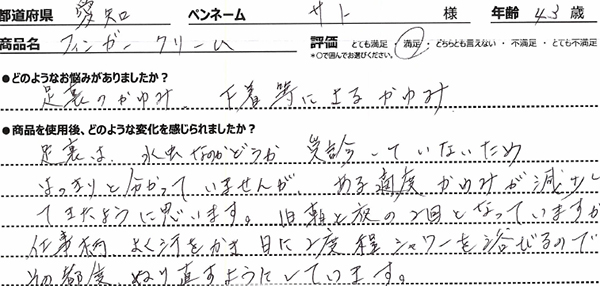 都道府県 愛知 ペンネーム サト 様 年齢 43 歳
商品名 フィンガークリーム 評価 とても満足・満足・どちらとも言えない・不満足・とても不満足
*○で囲んでお選びください。
●どのようなお悩みがありましたか？
足裏のかゆみ、下着等によるかゆみ
●商品を使用後、どのような変化を感じられましたか？
足裏は、水虫なのかどうか 受診していないため
はっきりと分かっていませんが、ある適度かゆみが減少し
てきたように思います。1日朝と夜の2回となっていますが
仕事柄 よく汗をかき 日に2度程シャワーを浴びるので
その都度、ぬり直すようにしています。